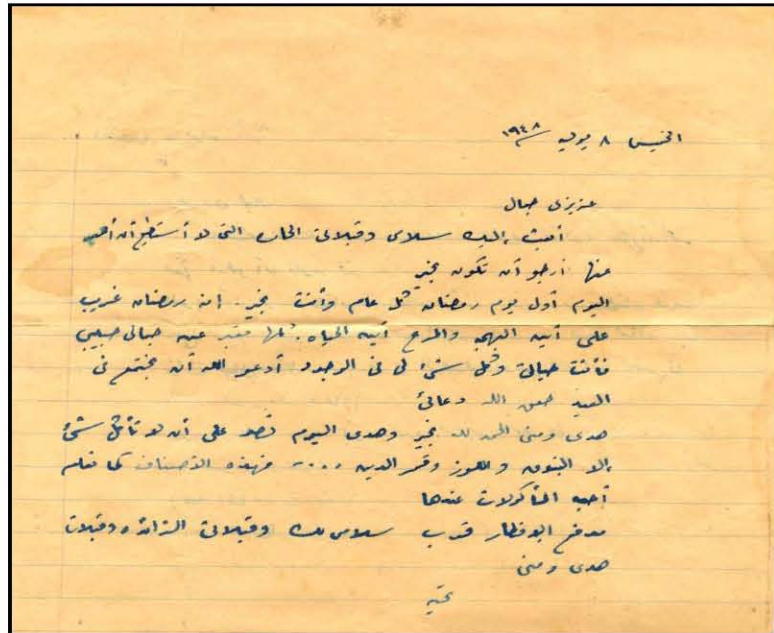 الخميس ٨ يوليه ١٩٤٨
عزيزى جمال
أبعث إليك سلامى وقبلاتى الحاره التى لا أستطيع أن أعبر
عنها أرجو أن تكون بخير
اليوم أول يوم رمضان كل عام وأنت بخير. إن رمضان غريب
على أين البهجه والمرح أين الحياه. كلها عند جمالى حبيبى
فأنت حياتى وكل شئ لى فى الوجود أدعو الله أن نجتمع فى
العيد حقق الله دعائى
هدى ومنى الحمد لله بخير وهدى اليوم تصر على أن لا تأكل شئ
إلا البندق واللوز وقمر الدين .... فهذه الأصناف كما تعلم
أحب المأكولات عندها
مدفع الإفطار قرب سلامى لك وقبلاتى الزائده وقبلات
هدى ومنى
تحيه